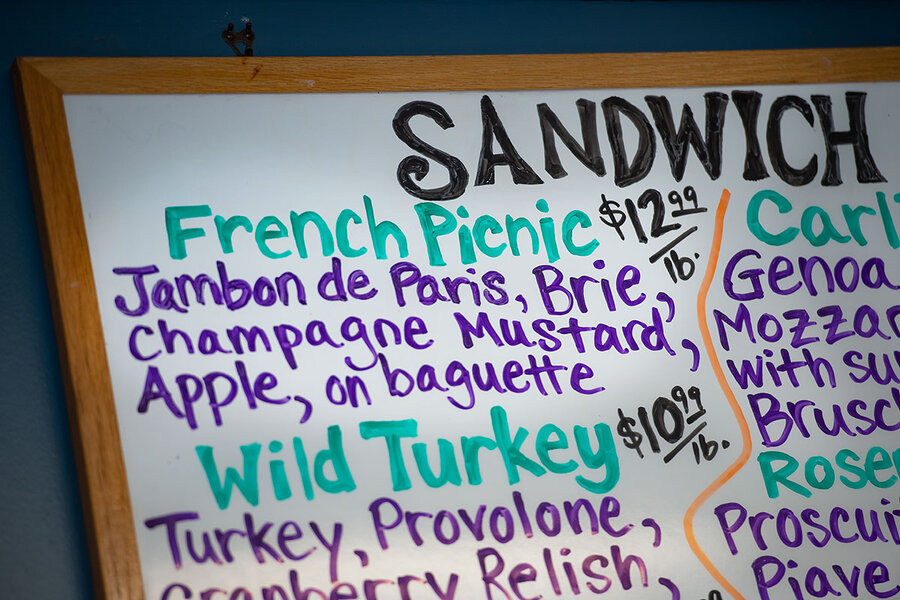 SANDWICH
French Picnic $12.99/lb.
Jambon de Paris, Brie,
Champagne Mustard,
Apple, on baguette
Wild Turkey $10.99/lb.
Turkey, Provolone,
Cranberry Relish,
Carli
Genoa
Mozzar
with su
Brusc
Rose
Proscui
Piave